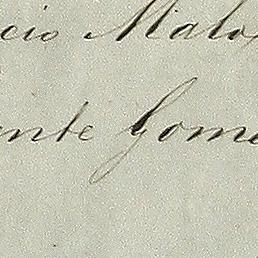 cio Mato
ente Gome